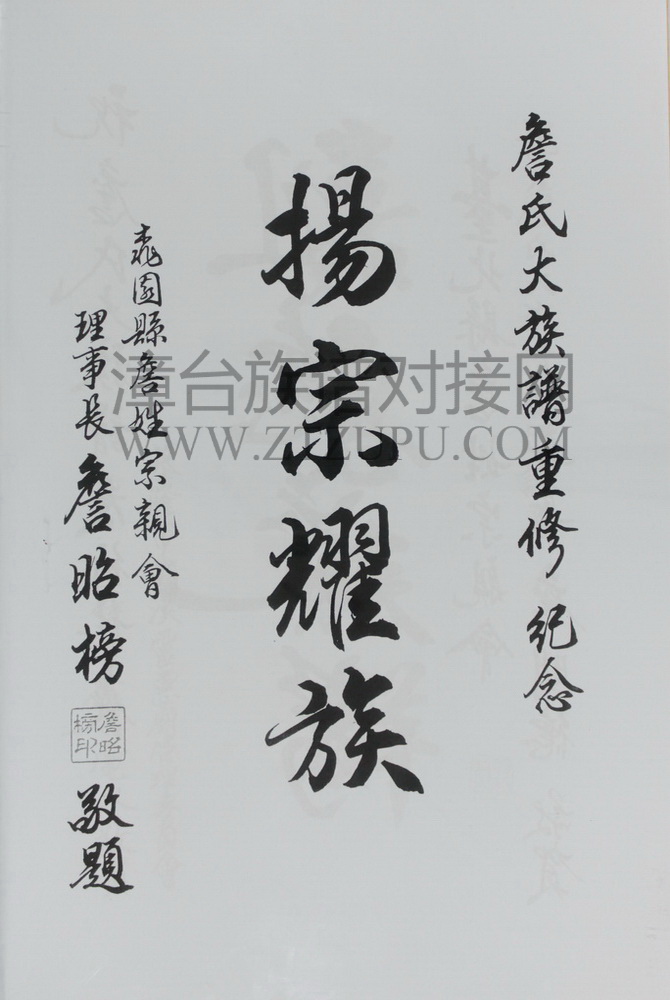 詹氏大族譜重修紀念
揚宗耀族
桃園縣詹姓宗親會
理事長詹昭榜敬題
詹昭榜印
漳台族谱对接网
WWW.ZTZUPU.COM